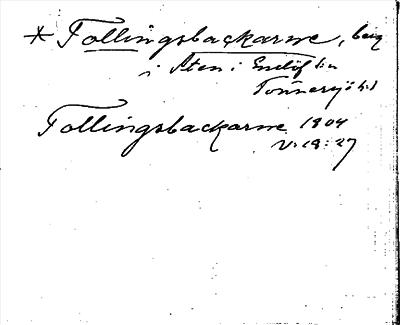 * Follingsbackarne, berg
i Sten i Enslöf sn
Tönnersjö hd
Follingsbackarne 1804
V: 19: 27